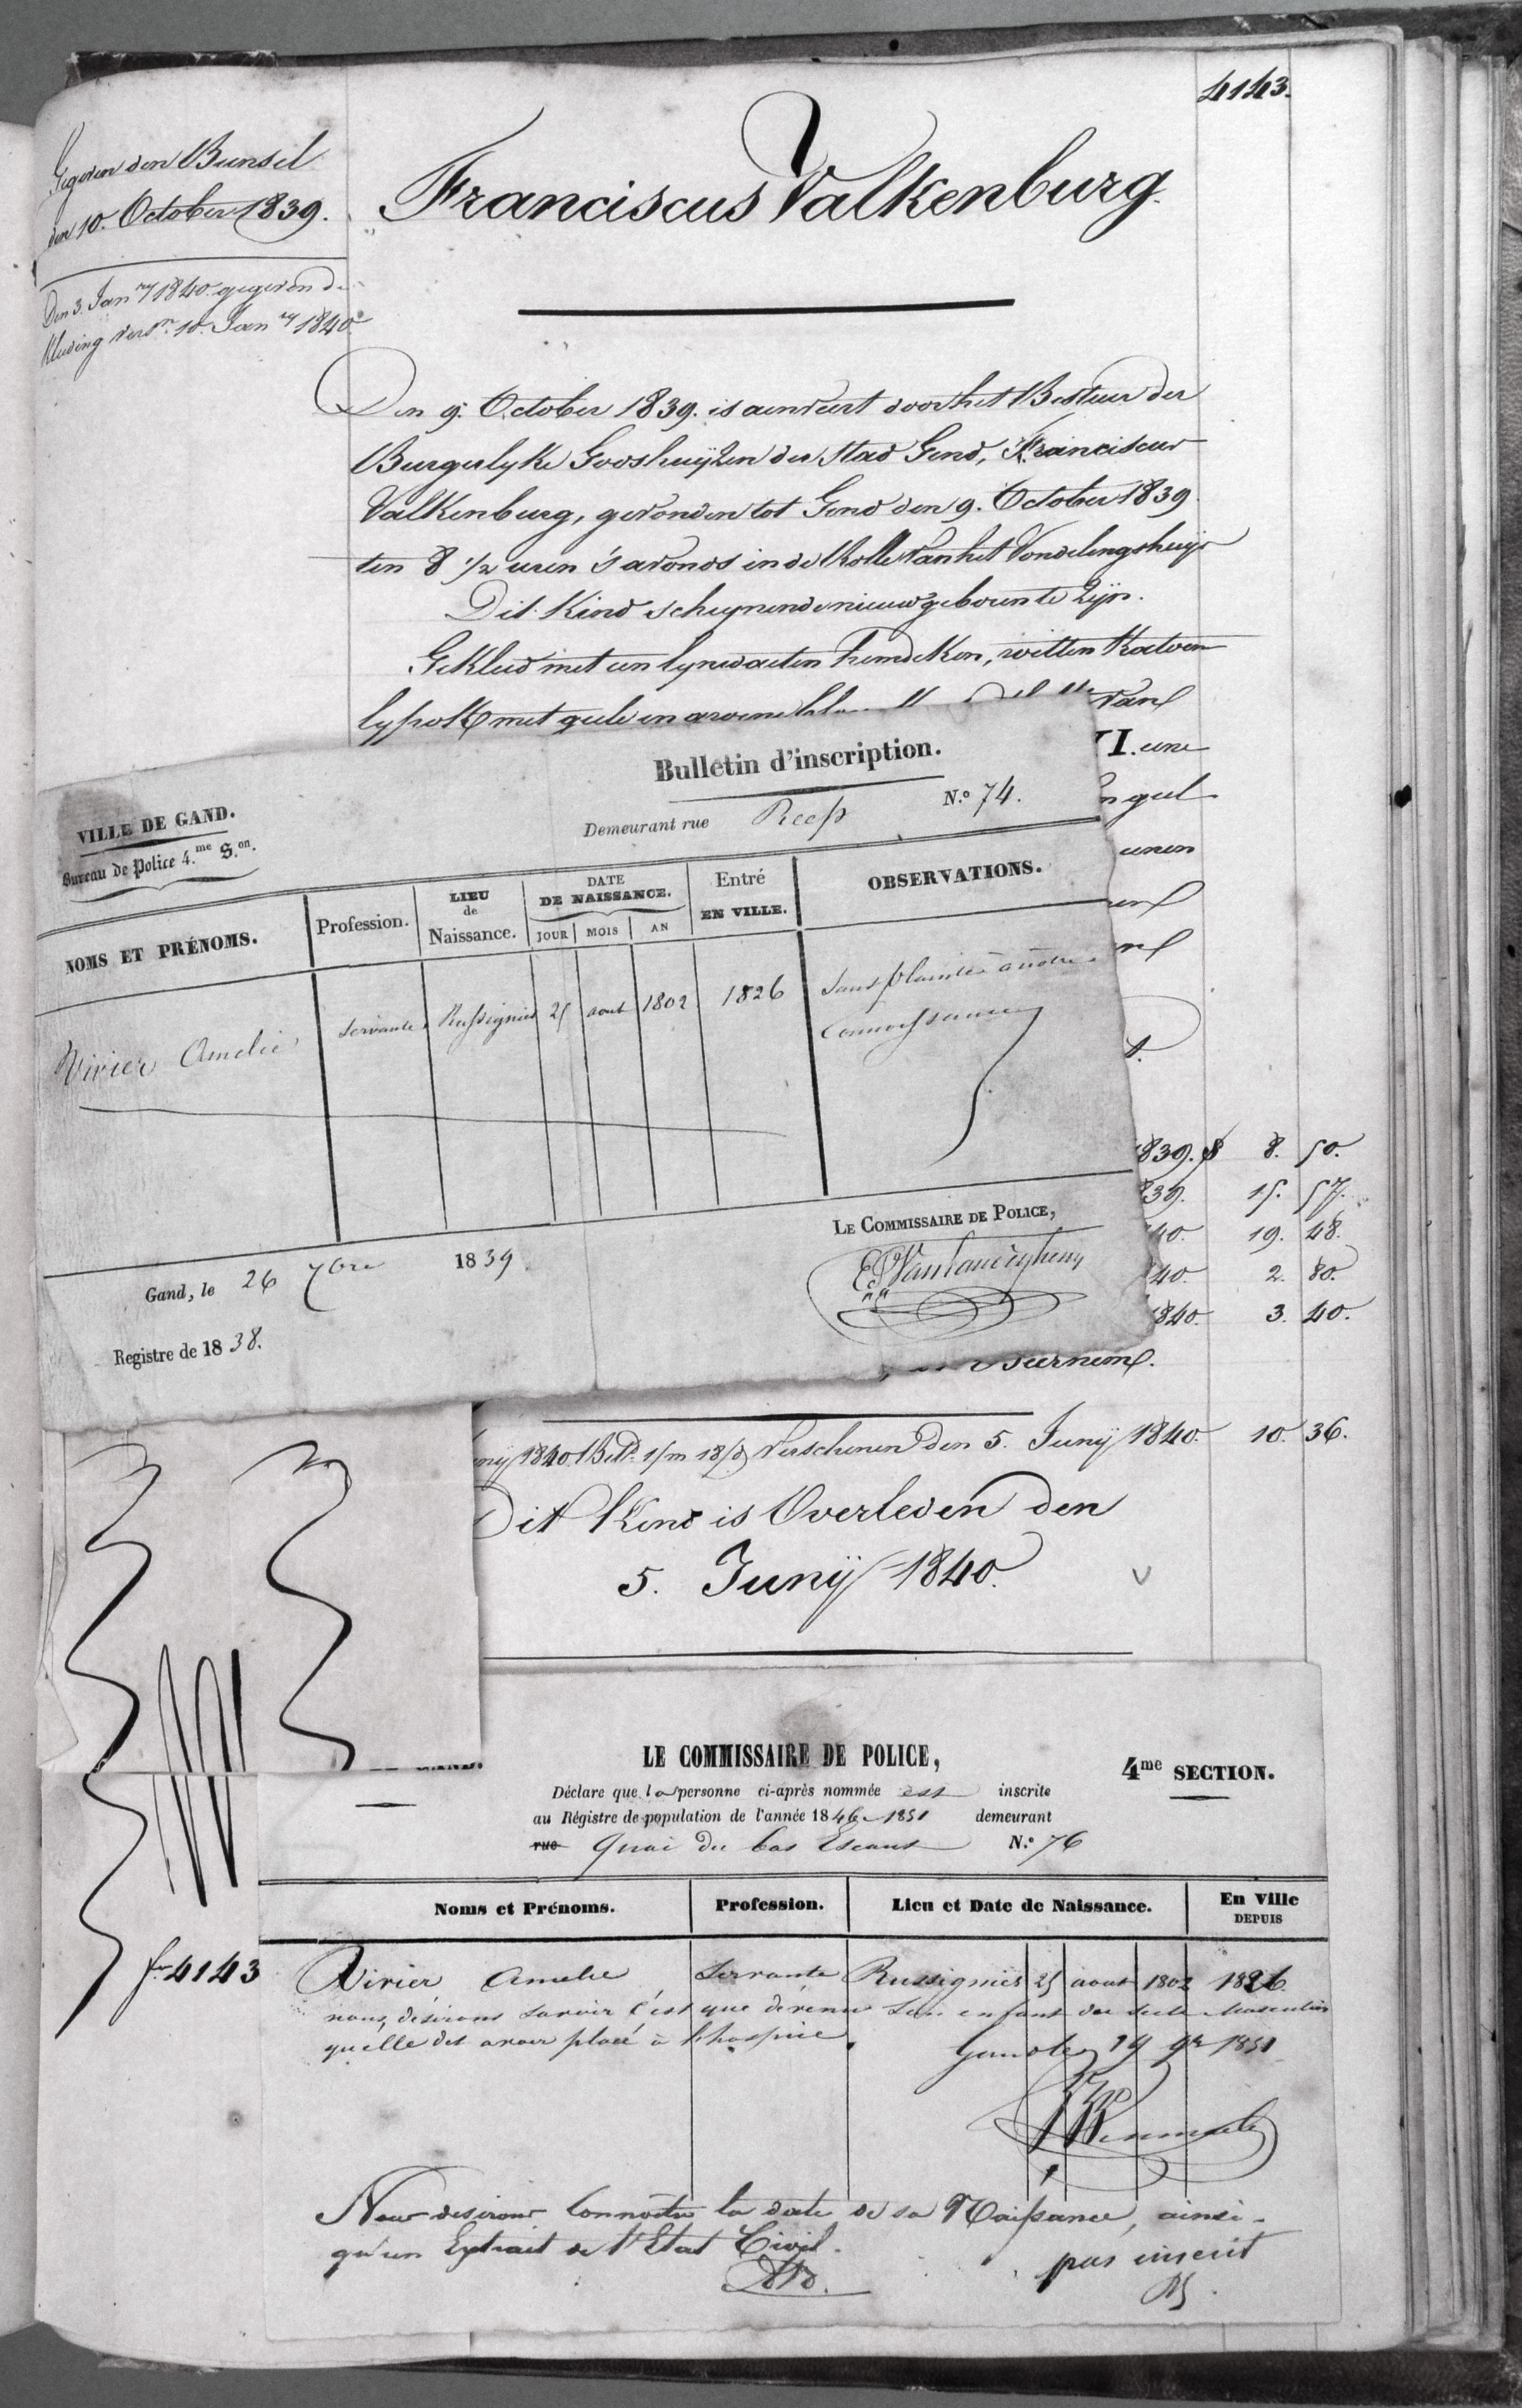 4143.
Gegeven den Bunsel
den 10. October 1839.
Den 3. Jan.ry 1840. gegeven de
Kleeding vers.n 10. Jan.ry 1840.
Franciscus Valkenburg.
Den 9. October 1839. is aenveert door het Bestuer der
Burgerlyke Godshuyzen der Stad Gend, Franciscus
Valkenburg, gevonden tot Gend den 9. October 1839.
ten 8 1/2 uren 's avonds in de Rolle van het Vondelingshuys
Dit Kind schynende nieuw geboren te zyn.
Gekleed met een lynwaeten hemdeken, witten Katoen
lyfrok met gele en
van
VI. une
geel
unen
839. 8. 50.
39. 15. 57.
40. 19. 48.
40. 2. 80.
1840. 3. 40.
Bulletin d'inscription.
VILLE DE GAND.
Bureau de Police 4.me S.on.
Demeurant rue Reep N.o 74.
NOMS ET PRÉNOMS. Profession. LIEU de Naissance. DATE DE NAISSANCE. JOUR MOIS AN Entré EN VILLE. OBSERVATIONS.
Vivier Amelie Servante Russignies 25 aout 1802 1826 Sans plainte à notre
Connoissance
LE COMMISSAIRE DE POLICE,
Gand, le 26 7bre 1839.
Registre de 1838.
1840. Verschenen den 5. Juny 1840. 10. 36.
Dit Kind is Overleden den
5. Juny 1840.
LE COMMISSAIRE DE POLICE,
4me SECTION.
Déclare que la personne ci-après nommée est inscrite
au Régistre de population de l'année 1846-1851 demeurant
rue Quai du bas Escaut N.o 76
Noms et Prénoms. Profession. Lieu et Date de Naissance. En Ville DEPUIS
f. 4143
Vivier Amelie Servante Russignies 25 aout 1802 1826
nous désirons savoir c'est que dévenu Son enfant du secte Masculin
qu'elle dit avoir placé à l'hospice.
Gand le 19 9r 1851
Nous desirons Connoitre la date de sa Naissance, ainsi
qu'un Extrait de l'Etat Civil.
pas inscrit